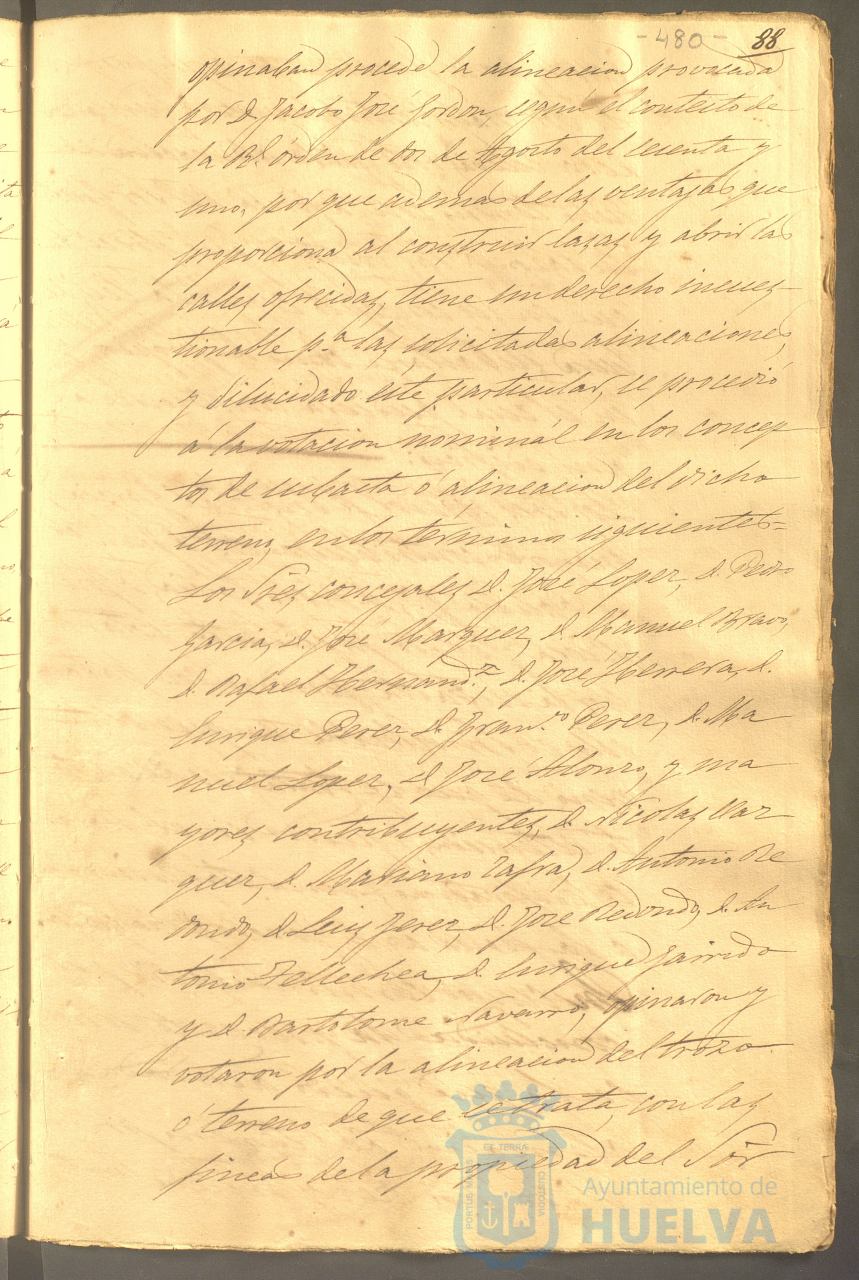 - 480 - 88
opinaban procede la alineacion provocada
por D. Jacobo José Jordon, segun el contesto de
la Rl. órden de dos de Agosto del sesenta y
uno, por que ademas de las ventajas que
proporciona al construir casas y abrir las
calles ofrecidas, tiene un derecho incues-
tionable pa. las solicitadas alineaciones,
y dilucidado este particular, se procedió
á la votacion nominál en los concep
tos de subasta ó alineacion del dicho
terreno, en los términos siguientes=
Los Sres concejales D. José Lopez, D. Pedro
Garcia, D. José Marquez, D. Manuel Bravo,
D. Rafael Hernandz., D. José Herrera, D.
Enrique Perez, D. Franco. Perez, D. Ma
nuel Lopez, D. José Alonso, y ma
yores contribuyentes, D. Nicolas Vaz
quez, D. Mariano Zafra, D. Antonio Re
dondo, D. Luis Jerez, D. José Redondo, D. An
tonio Tellechea, D. Enrique Garrido
y D. Bartolome Navarro, opinaron y
votaron por la alineacion del trozo
ó terreno de que se trata, con las
fincas de la propiedad del Sór
PORTUS MARIS
ET TERRÆ
CUSTODIA
Ayuntamiento de
HUELVA